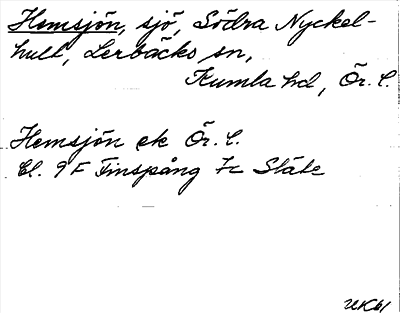 Hemsjön, sjö, Södra Nyckel-
hult, Lerbäcks sn,
Kumla hd, Ör. l.
Hemsjön ek Ör. l.
Bl. 9F Finspång 7c Släte
UK61